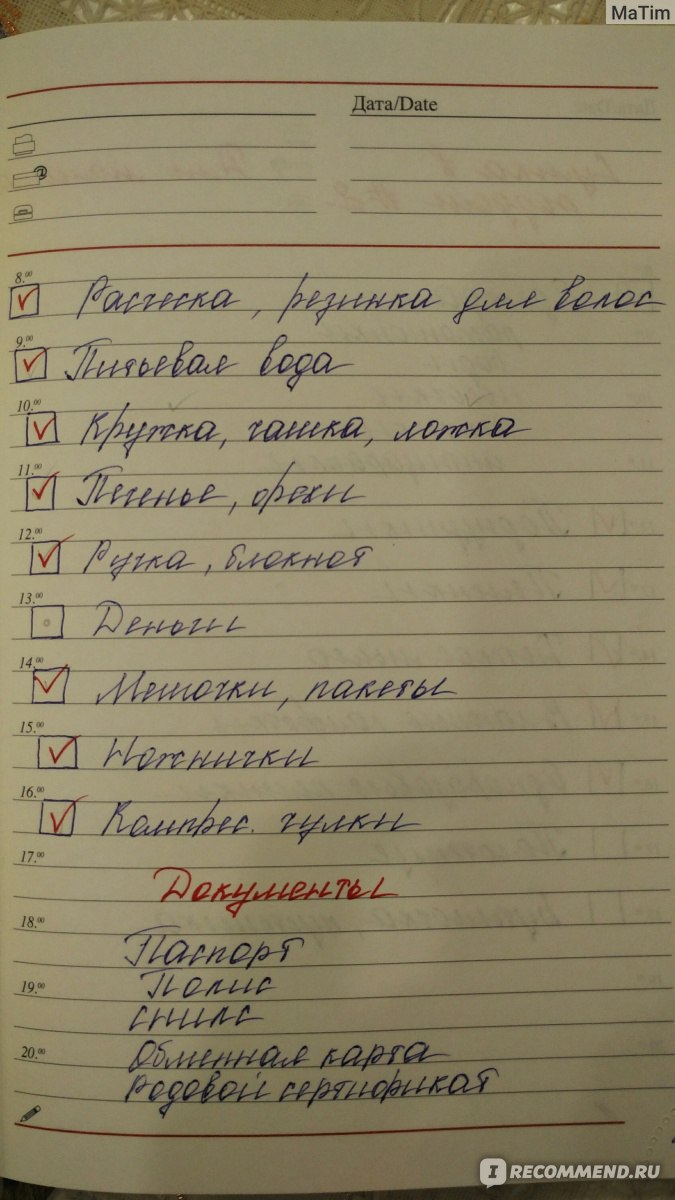 MaTim
Дата/Date
8.00
Расческа, резинка для волос
9.00
Питьевая вода
10.00
Кружка, чашка, ложка
11.00
Печенье, орехи
12.00
Ручка, блокнот
13.00
Деньги
14.00
Мешочки, пакеты
15.00
Ножнички
16.00
Компрес. чулки
17.00
Документы
18.00
Паспорт
Полис
19.00
снилс
20.00
Обменная карта
Родовой сертификат
IRECOMMEND.RU